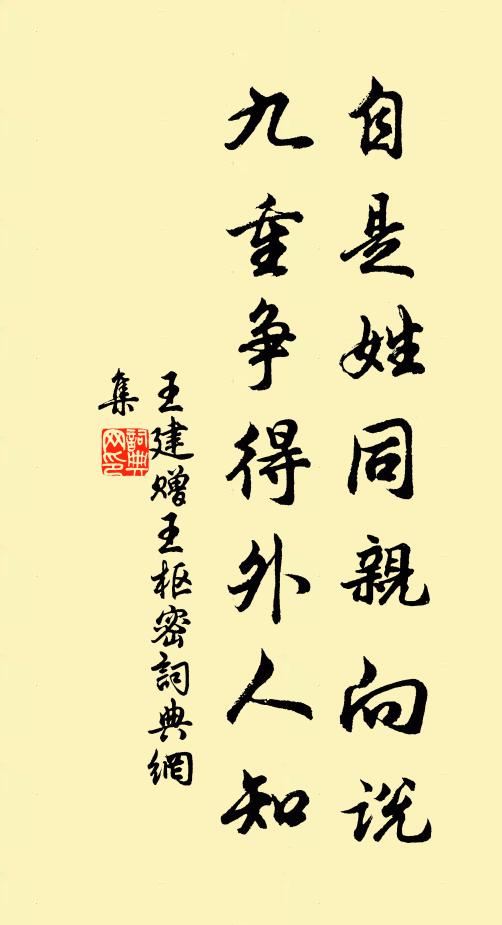 自是姓同親向説
九重争得外人知
王建赠王枢密詞典網
集
詞典
网印